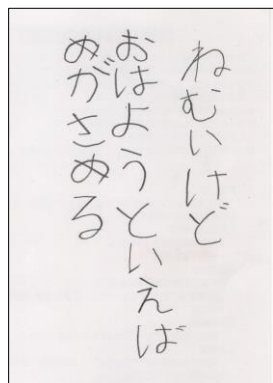 ねむいけど
おはようといえば
めがさめる